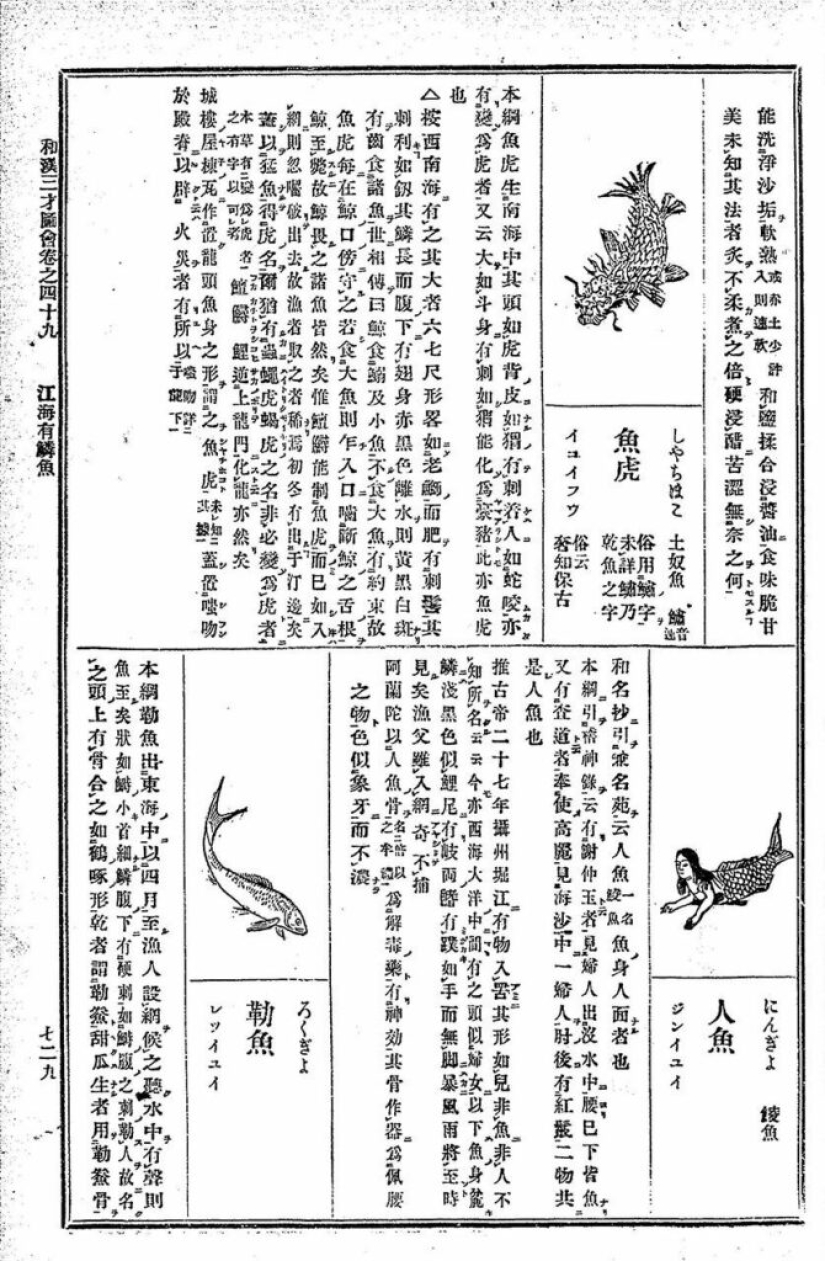 能洗淨沙垢軟熟 或亦土少許入則速軟 和鹽揉合浸醬油食味脆甘
美未知其法者炙不柔煮之倍硬浸醋苦澀無奈之何
しやちほこ 土奴魚 鱐音
魚虎
俗用鱐字
未詳鱐乃
乾魚之字
イユイフウ
俗云
奢知保古
本綱魚虎生南海中其頭如虎背皮如猬有刺着人如蛇咬亦
有變爲虎者又云大如斗身有刺如猬能化爲豪豬此亦魚虎
也
△按西南海有之其大者六七尺形畧如老鰤而肥有刺鬐其
刺利如釼其鱗長而腹下有翅身赤黑色離水則黃黑白斑
有齒食諸魚世相傳曰鯨食鰯及小魚不食大魚有約束故
魚虎每在鯨口傍守之若食大魚則乍入口嚙斷鯨之舌根
鯨至斃故鯨畏之諸魚皆然矣惟鱣鱘能制魚虎而已如入
網則忽嚙破出去故漁者取之者稀焉初冬有出于汀邊矣
蓋以猛魚得虎名爾猶有蟲蠅虎蝎虎之名非必變爲虎者
本草有變爲虎者之有字以可考 鱣鱘 鯉逆上龍門化龍亦然矣
城樓屋棟瓦作置龍頭魚身之形謂之魚虎 未知其據 蓋置嗤吻
於殿脊以辟火災者有所以 嗤吻詳于龍下
にんぎよ 鯪魚
人魚
ジンイユイ
和名抄引兼名苑云人魚 一名鯪魚 魚身人面者也
本綱引稽神錄云有謝仲玉者見婦人出沒水中腰已下皆魚
又有査道者奉使高麗見海沙中一婦人肘後有紅鬣二物共
是人魚也
推古帝二十七年攝州堀江有物入罟其形如兒非魚非人不
知所名云云今亦西海大洋中間有之頭似婦女以下魚身麄
鱗淺黑色似鯉尾有岐兩鰭有蹼如手而無脚暴風雨將至時
見矣漁父雖入網奇不捕
阿蘭陀以人魚骨 爲解毒藥有神効其骨作器爲佩腰
之物色似象牙而不濃
ろくぎよ
勒魚
レツイユイ
本綱勒魚出東海中以四月至漁人設網候之聽水中有聲則
魚至矣狀如鰣小首細鱗腹下有硬刺如鰣腹之刺勒人故名
之頭上有骨合之如鶴啄形乾者謂勒鯗甜瓜生者用勒鯗骨
和漢三才圖會卷之四十九 江海有鱗魚
七二九